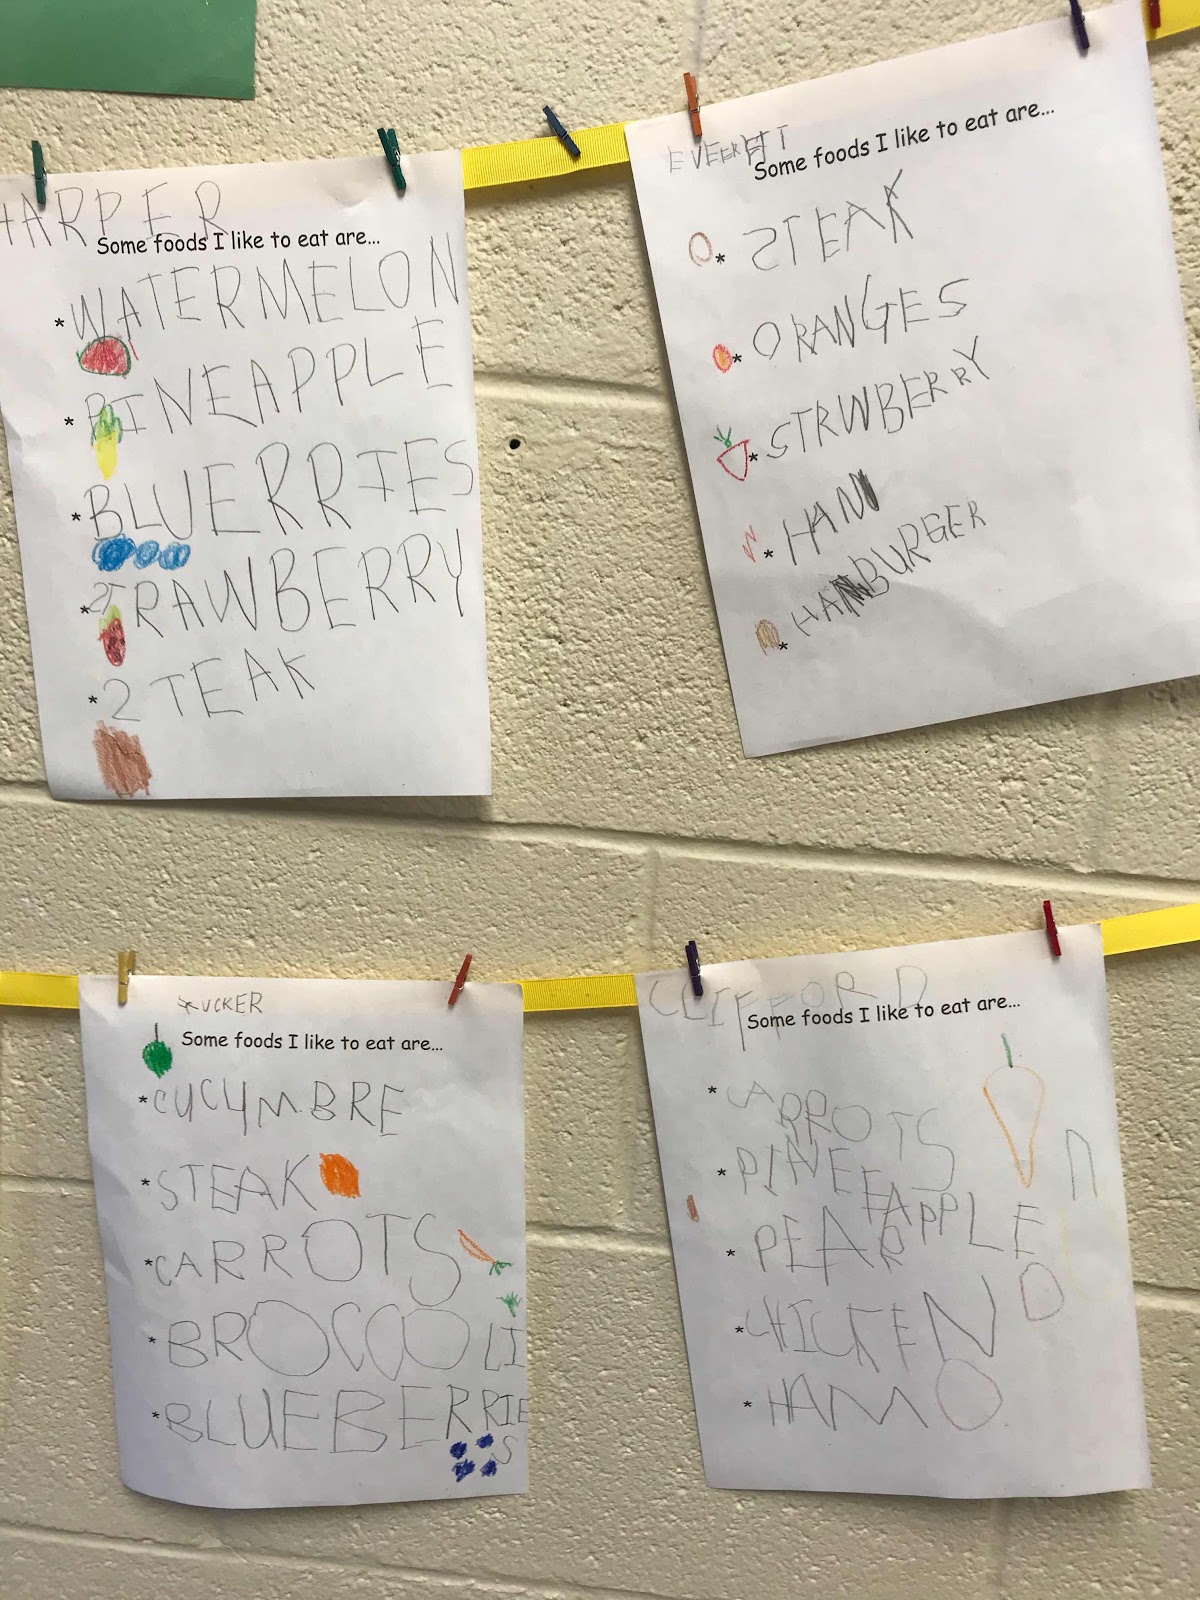 HARPER
Some foods I like to eat are...
* WATERMELON
* PINEAPPLE
* BLUERRIES
* STRAWBERRY
* 2TEAK
EVEERETT
Some foods I like to eat are...
* STEAK
* ORANGES
* STRWBERRY
* HAM
* HAMBURGER
TUCKER
Some foods I like to eat are...
* CUCUMBRE
* STEAK
* CARROTS
* BROCCOLI
* BLUEBERRIE
S
CLIFFORD
Some foods I like to eat are...
* CARROTS
* PINEEAPPLE
* PEAR
* CHICKEN
* HAM